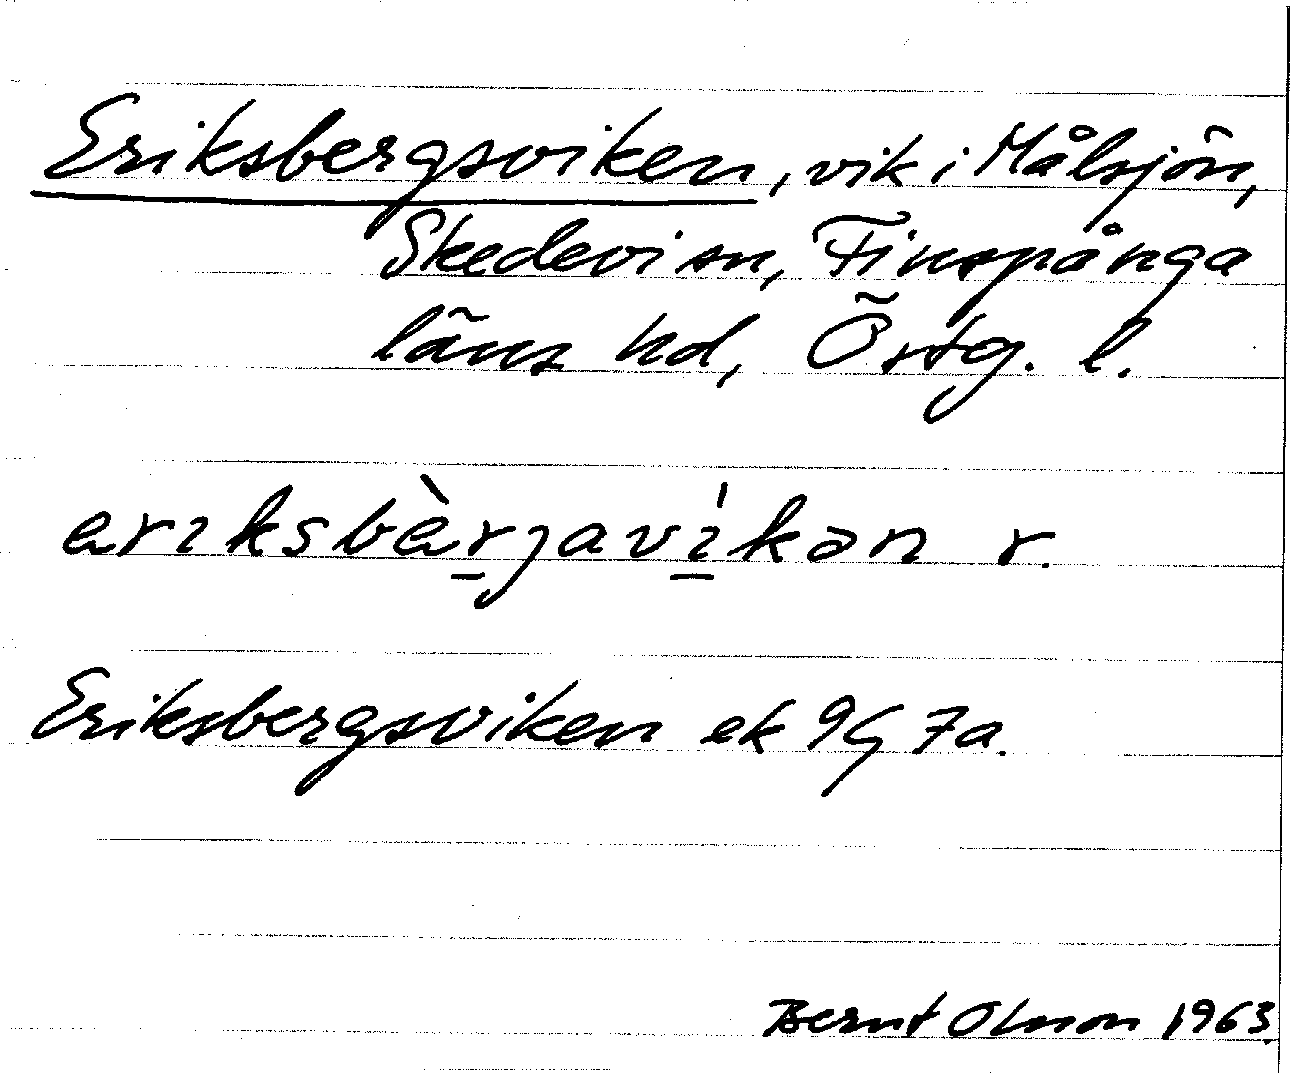 Eriksbergsviken, vik i Målsjön,
Skedevi sn, Finspånga
läns hd, Östg. l.
erıksbæ̀rjavı̍kən r.
Eriksbergsviken ek 9G 7a.
Bernt Olsson 1963.